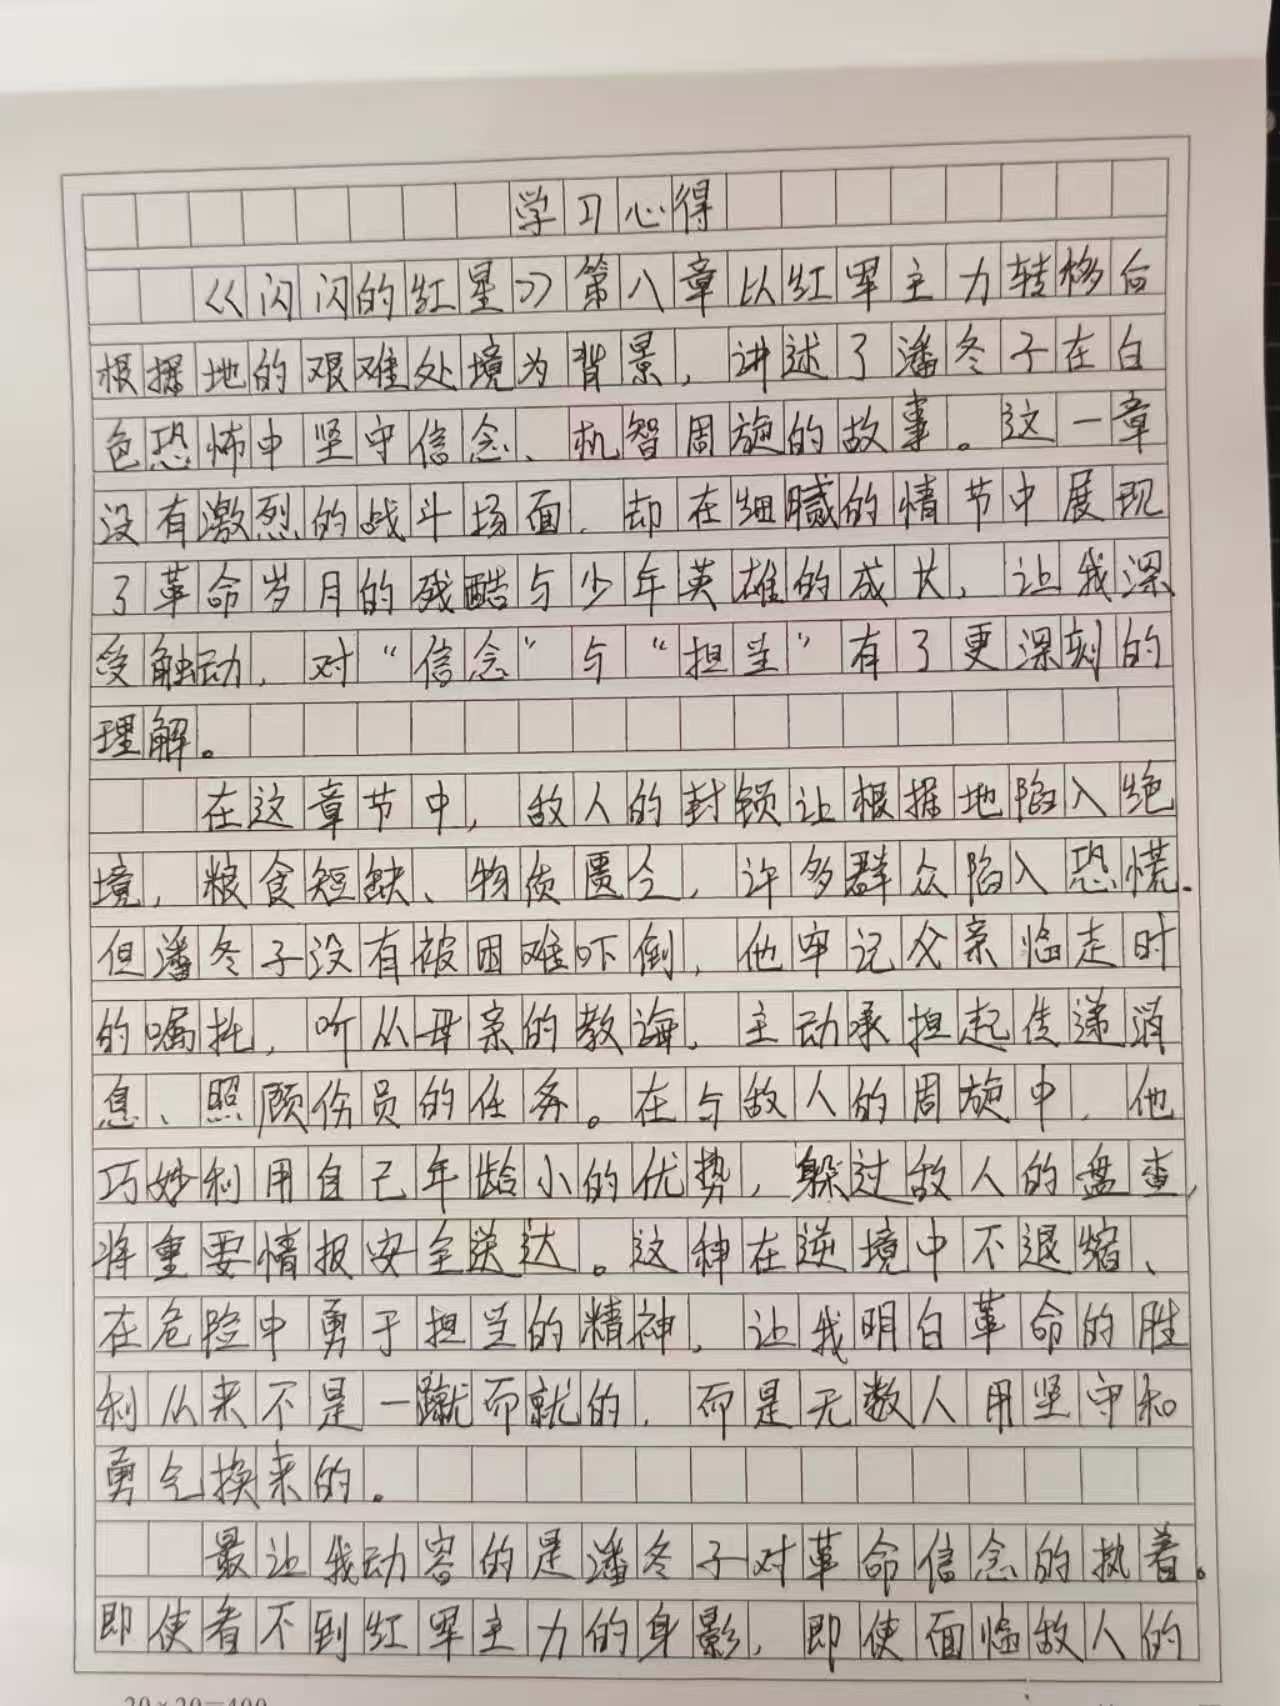 学习心得
《闪闪的红星》第八章以红军主力转移后
根据地的艰难处境为背景，讲述了潘冬子在白
色恐怖中坚守信念、机智周旋的故事。这一章
没有激烈的战斗场面，却在细腻的情节中展现
了革命岁月的残酷与少年英雄的成长，让我深
受触动，对“信念”与“担当”有了更深刻的
理解。
在这章节中，敌人的封锁让根据地陷入绝
境，粮食短缺、物资匮乏，许多群众陷入恐慌.
但潘冬子没有被困难吓倒，他牢记父亲临走时
的嘱托，听从母亲的教诲，主动承担起传递消
息、照顾伤员的任务。在与敌人的周旋中，他
巧妙利用自己年龄小的优势，躲过敌人的盘查，
将重要情报安全送达。这种在逆境中不退缩、
在危险中勇于担当的精神，让我明白革命的胜
利从来不是一蹴而就的，而是无数人用坚守和
勇气换来的。
最让我动容的是潘冬子对革命信念的执着。
即使看不到红军主力的身影，即使面临敌人的
20×20=400